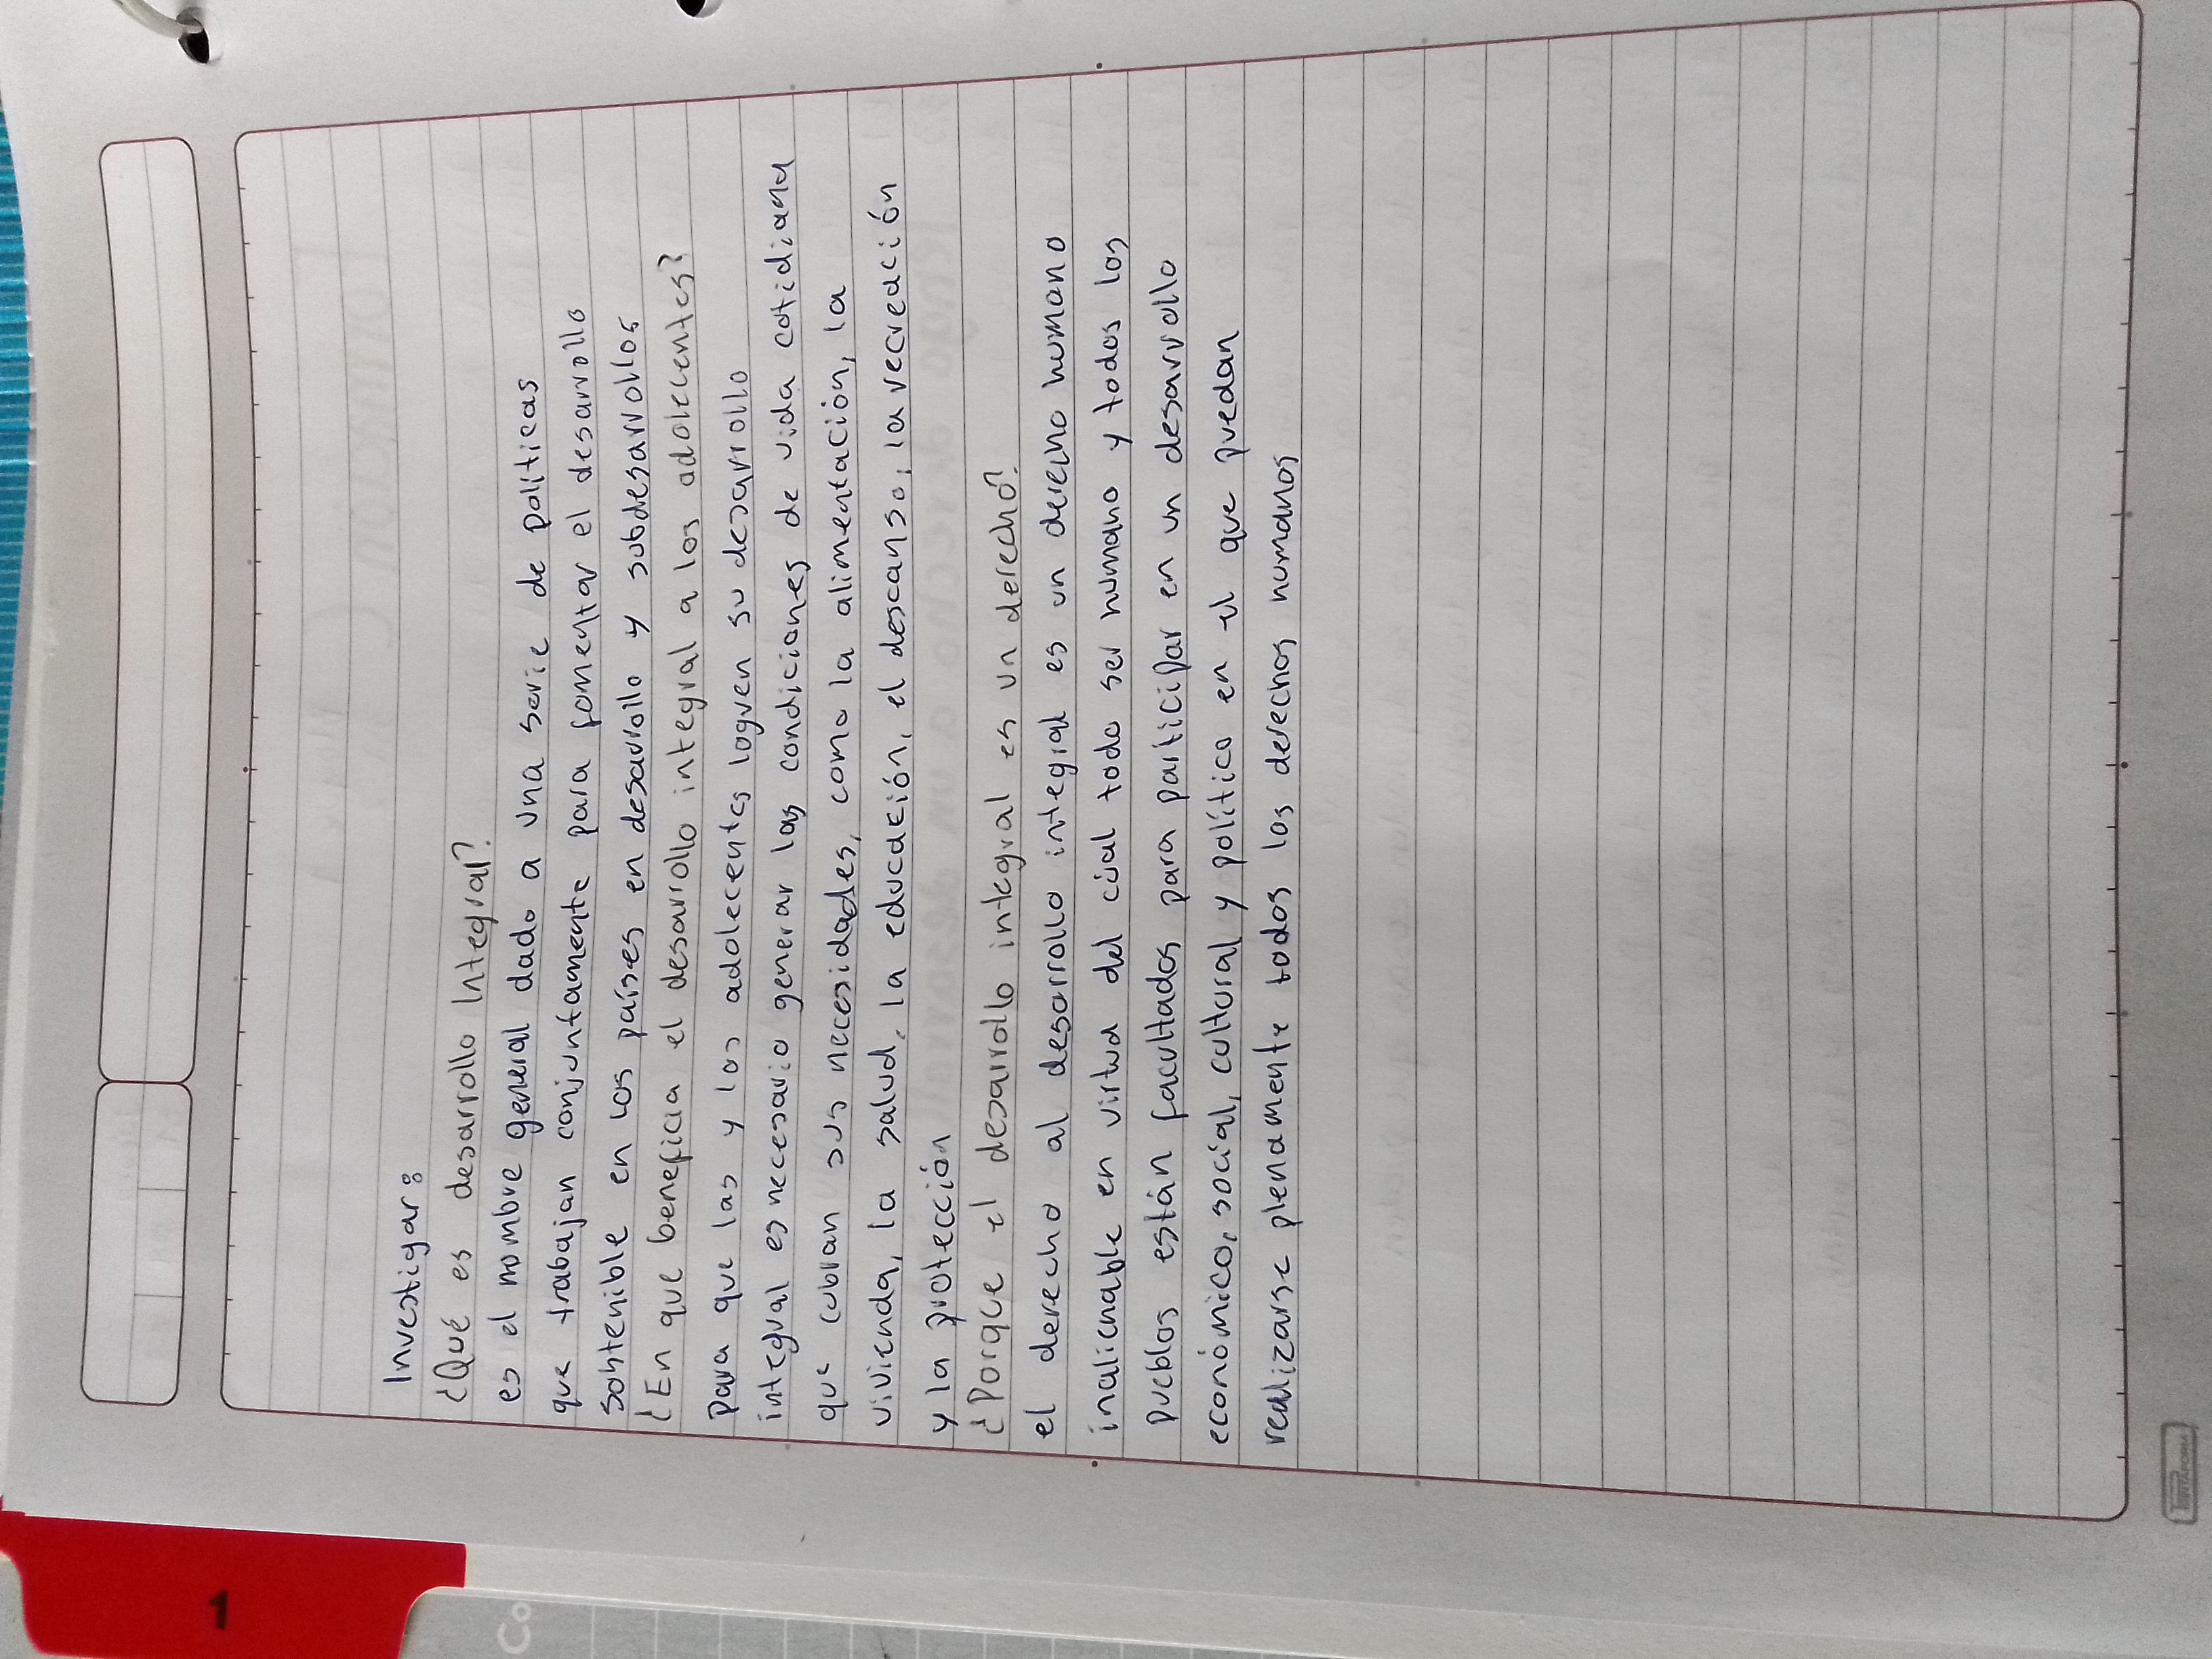 Investigar:
¿Qué es desarrollo Integral?
es el nombre general dado a una serie de politicas
que trabajan conjuntamente para fomentar el desarrollo
sostenible en los países en desarrollo y subdesarrollos
¿En que beneficia el desarollo integral a los adolecentes?
Para que las y los adolecentes logren su desarrollo
integral es necesario generar las condiciones de vida cotidiana
que cubran sus necesidades, como la alimentación, la
vivienda, la salud, la educación, el descanso, la recreación
y la protección
¿Porque el desarrollo integral es un derecho?
el derecho al desarrollo integral es un derecho humano
inalienable en virtud del cual todo ser humano y todos los
pueblos están facultados para participar en un desarrollo
económico, social, cultural y político en el que puedan
realizarse plenamente todos los derechos humanos
1
Co